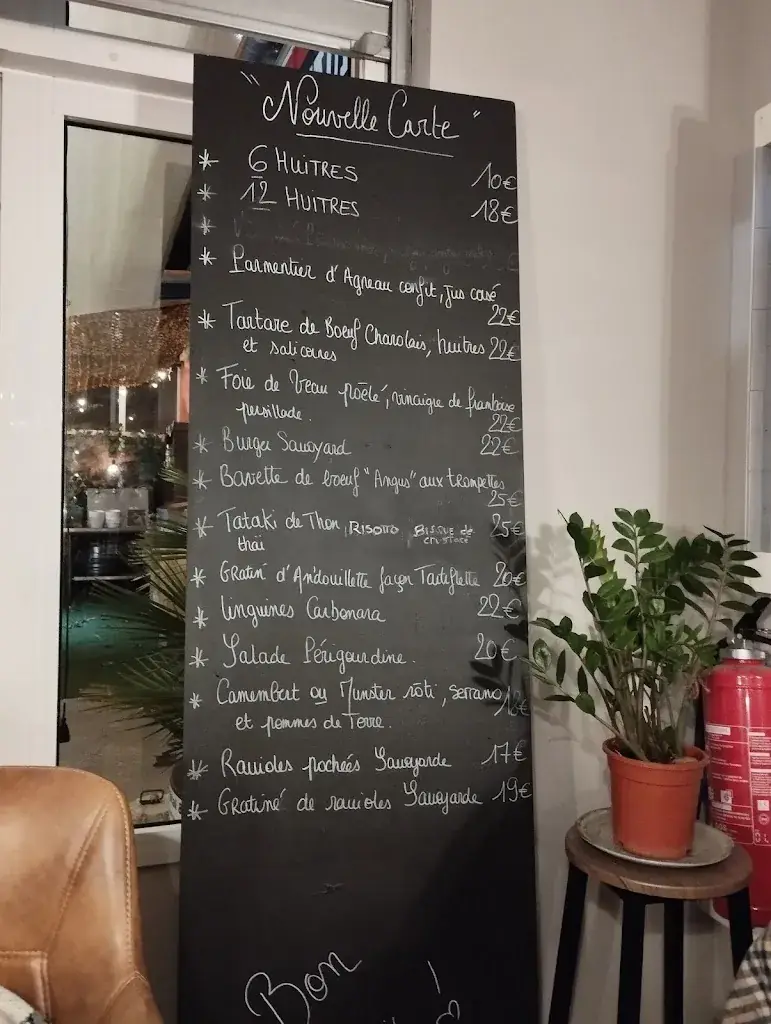 " Nouvelle Carte "
* 6 HUITRES 10€
* 12 HUITRES 18€
*
* Parmentier d'Agneau confit, jus corsé
22€
* Tartare de Boeuf Charolais, huitres 22€
et salicornes
* Foie de Veau poêlé, vinaigre de framboise
persillade. 22€
* Burger Savoyard 22€
* Bavette de boeuf "Angus" aux trompettes
25€
* Tataki de Thon, RISOTTO BISQUE de 25€
thaï crustacé
* Gratin d'Andouillette façon Tartiflette 20€
* linguines Carbonara 22€
* Salade Périgourdine. 20€
* Camembert ou Munster rôti, serrano
et pommes de Terre.
* Ravioles pochées Savoyarde 17€
* Gratiné de ravioles Savoyarde 19€
Bon !